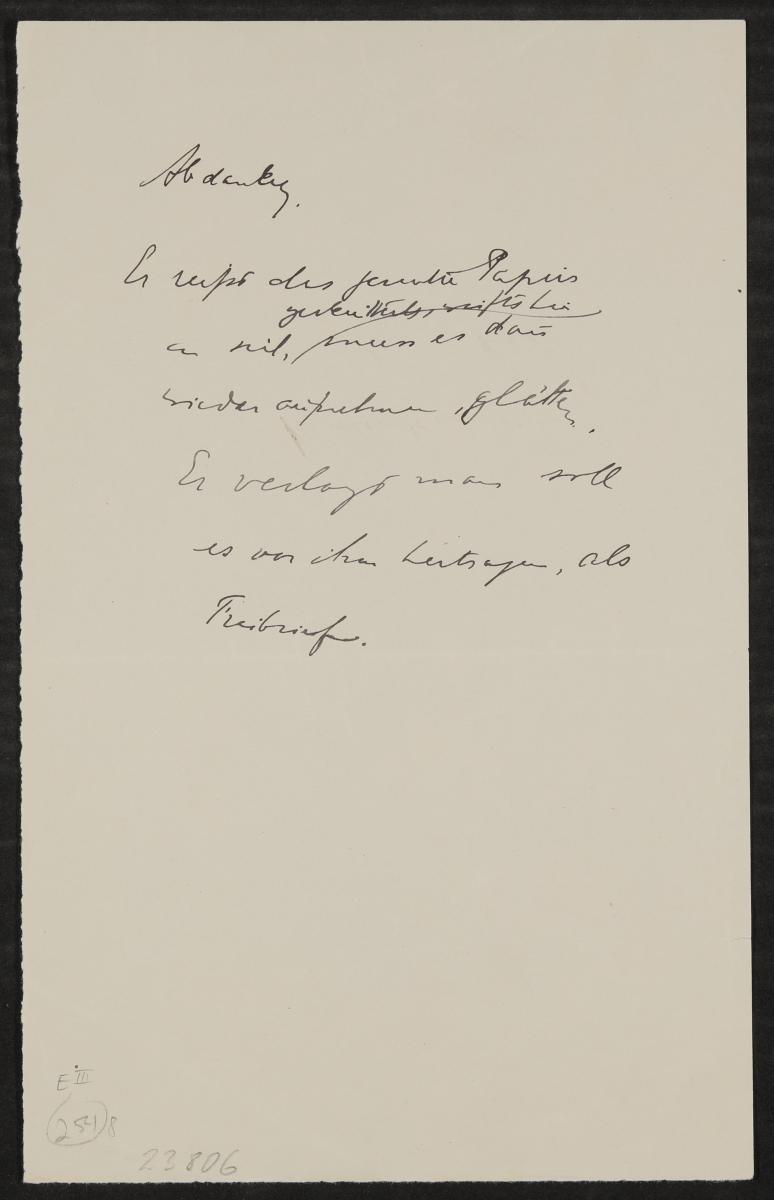 Abdankg.
Er reisst das gesuchte Papier
zerknittert, wirft es hin
an sich, muss es dann
wieder aufnehmen, glätten.
Er verlangt man soll
es vor ihm hertragen, als
Freibrief.
E III
254 8
23806